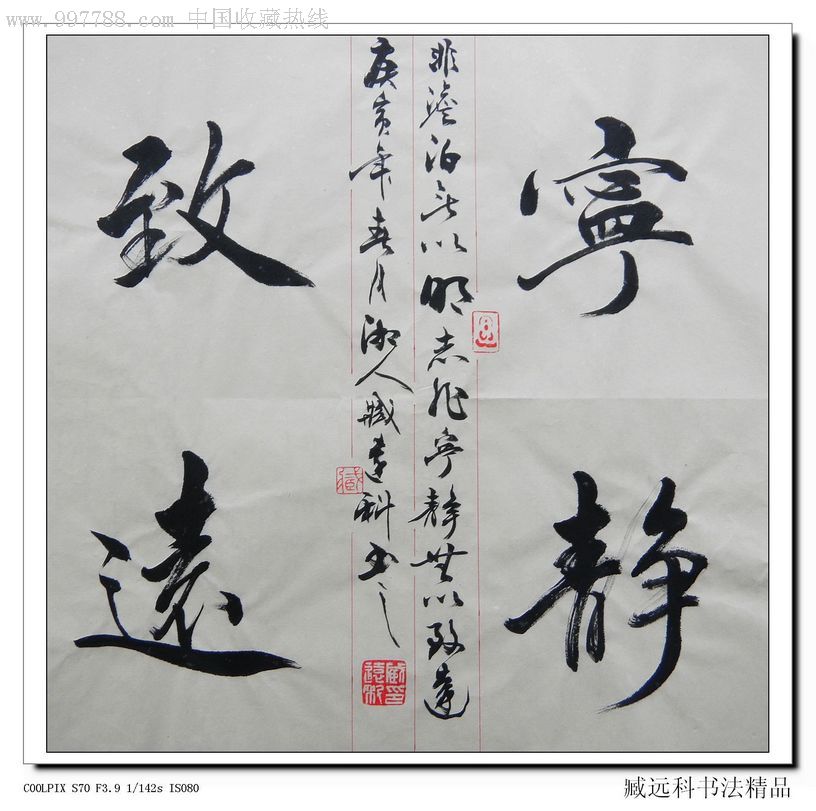 www.997788.com 中国收藏热线
寧静
致遠
非澹泊无以明志非寧静無以致遠
庚寅年春月湘人臧遠科书之
臧
COOLPIX S70 F3.9 1/142s ISO80
臧远科书法精品